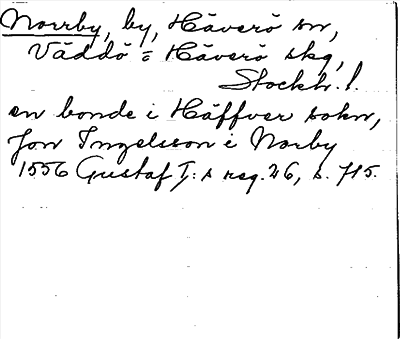 Norrby, by, Häverö sn,
Väddö o Häverö skg,
Stockh. l.
en bonde i Häffver sokn,
Jon Ingelsson i Norby
1556 Gustaf I:s reg. 26, s. 715.